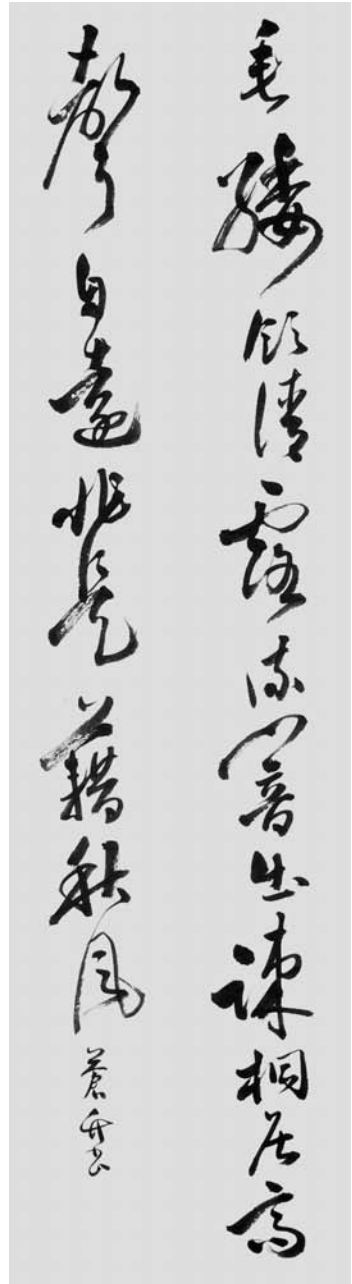 垂緌飲清露流響出疎桐居高
聲自遠非是藉秋風 蒼书